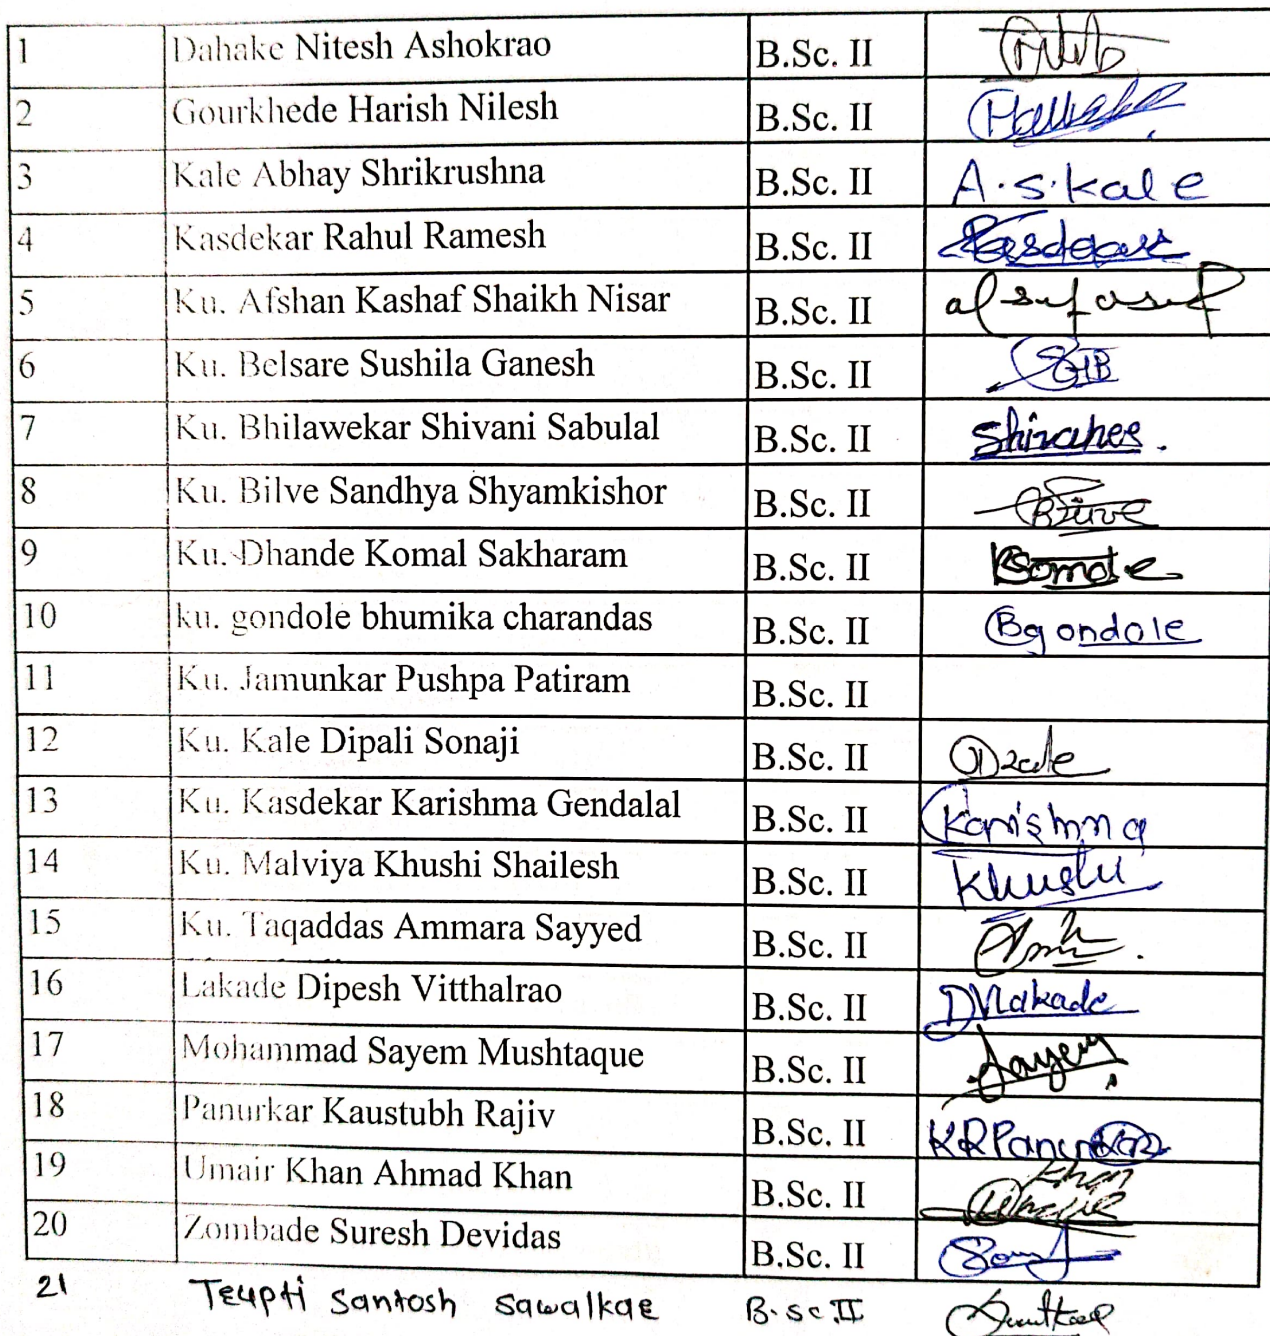 1 Dahake Nitesh Ashokrao B.Sc. II
2 Gourkhede Harish Nilesh B.Sc. II
3 Kale Abhay Shrikrushna B.Sc. II A.S.Kale
4 Kasdekar Rahul Ramesh B.Sc. II
5 Ku. Afshan Kashaf Shaikh Nisar B.Sc. II
6 Ku. Belsare Sushila Ganesh B.Sc. II
7 Ku. Bhilawekar Shivani Sabulal B.Sc. II
8 Ku. Bilve Sandhya Shyamkishor B.Sc. II
9 Ku. Dhande Komal Sakharam B.Sc. II
10 ku. gondole bhumika charandas B.Sc. II Bgondole
11 Ku. Jamunkar Pushpa Patiram B.Sc. II
12 Ku. Kale Dipali Sonaji B.Sc. II
13 Ku. Kasdekar Karishma Gendalal B.Sc. II Karishma
14 Ku. Malviya Khushi Shailesh B.Sc. II Khushi
15 Ku. Taqaddas Ammara Sayyed B.Sc. II
16 Lakade Dipesh Vitthalrao B.Sc. II DVlakade
17 Mohammad Sayem Mushtaque B.Sc. II Sayem
18 Panurkar Kaustubh Rajiv B.Sc. II
19 Umair Khan Ahmad Khan B.Sc. II Khan
20 Zombade Suresh Devidas B.Sc. II
21 Santosh B.sc.II